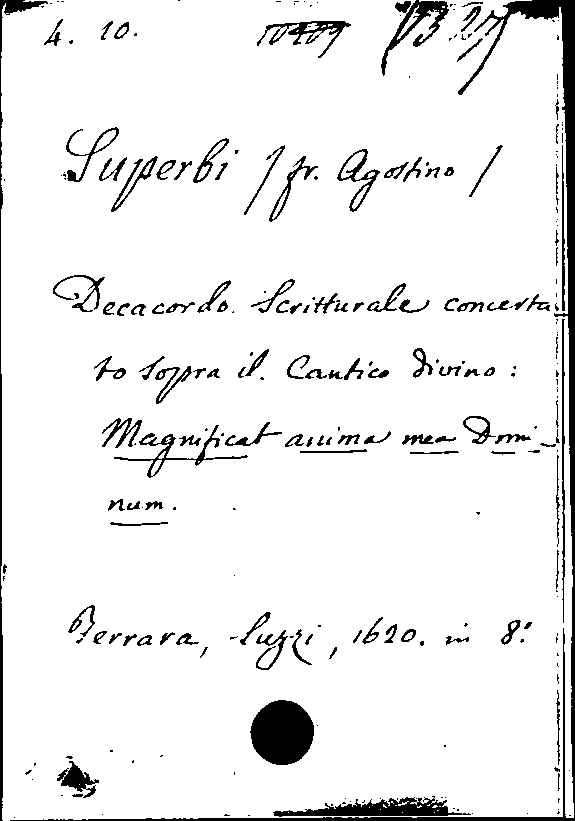 4. 10. 10409
Superbi / fr. Agostino /
Decacordo. Scritturale concerta
to sopra il. Cantico divino :
Magnificat anima mea Domi-
num.
Ferrara, Suzzi, 1620. in 8.°